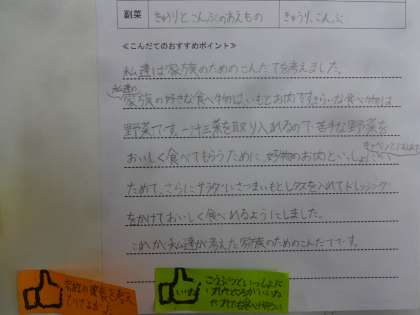 副菜 きゅうりとこんぶのあえもの きゅうり、こんぶ
≪こんだてのおすすめポイント≫
私達は家族のためのこんだてを考えました。
私達の
家族の好きな食べ物は、いもとお肉です。きらいな食べ物は
野菜です。一汁三菜を取り入れるので苦手な野菜を
おいしく食べてもらうために、好物のお肉といっしょに
ためて、さらにサラダにさつまいもとレタスを入れてドレッシング
をかけておいしく食べれるようにしました。
これが私達が考えた家族のためのこんだてです。
家族の
考え
いいね
いっしょに